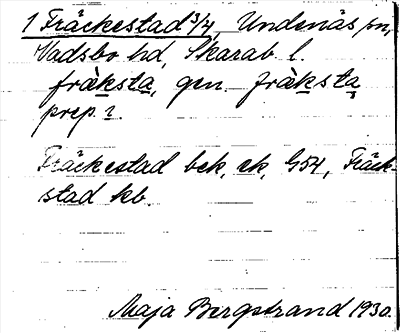 1 Fräckestad 3/4, Undenäs sn,
Vadsbo hd, Skarab. l.
fràksta, gen. fràksta
prep. i.
Fräckestad bek, ek, G54, Fräck-
stad kb.
Maja Bergstrand 1930.